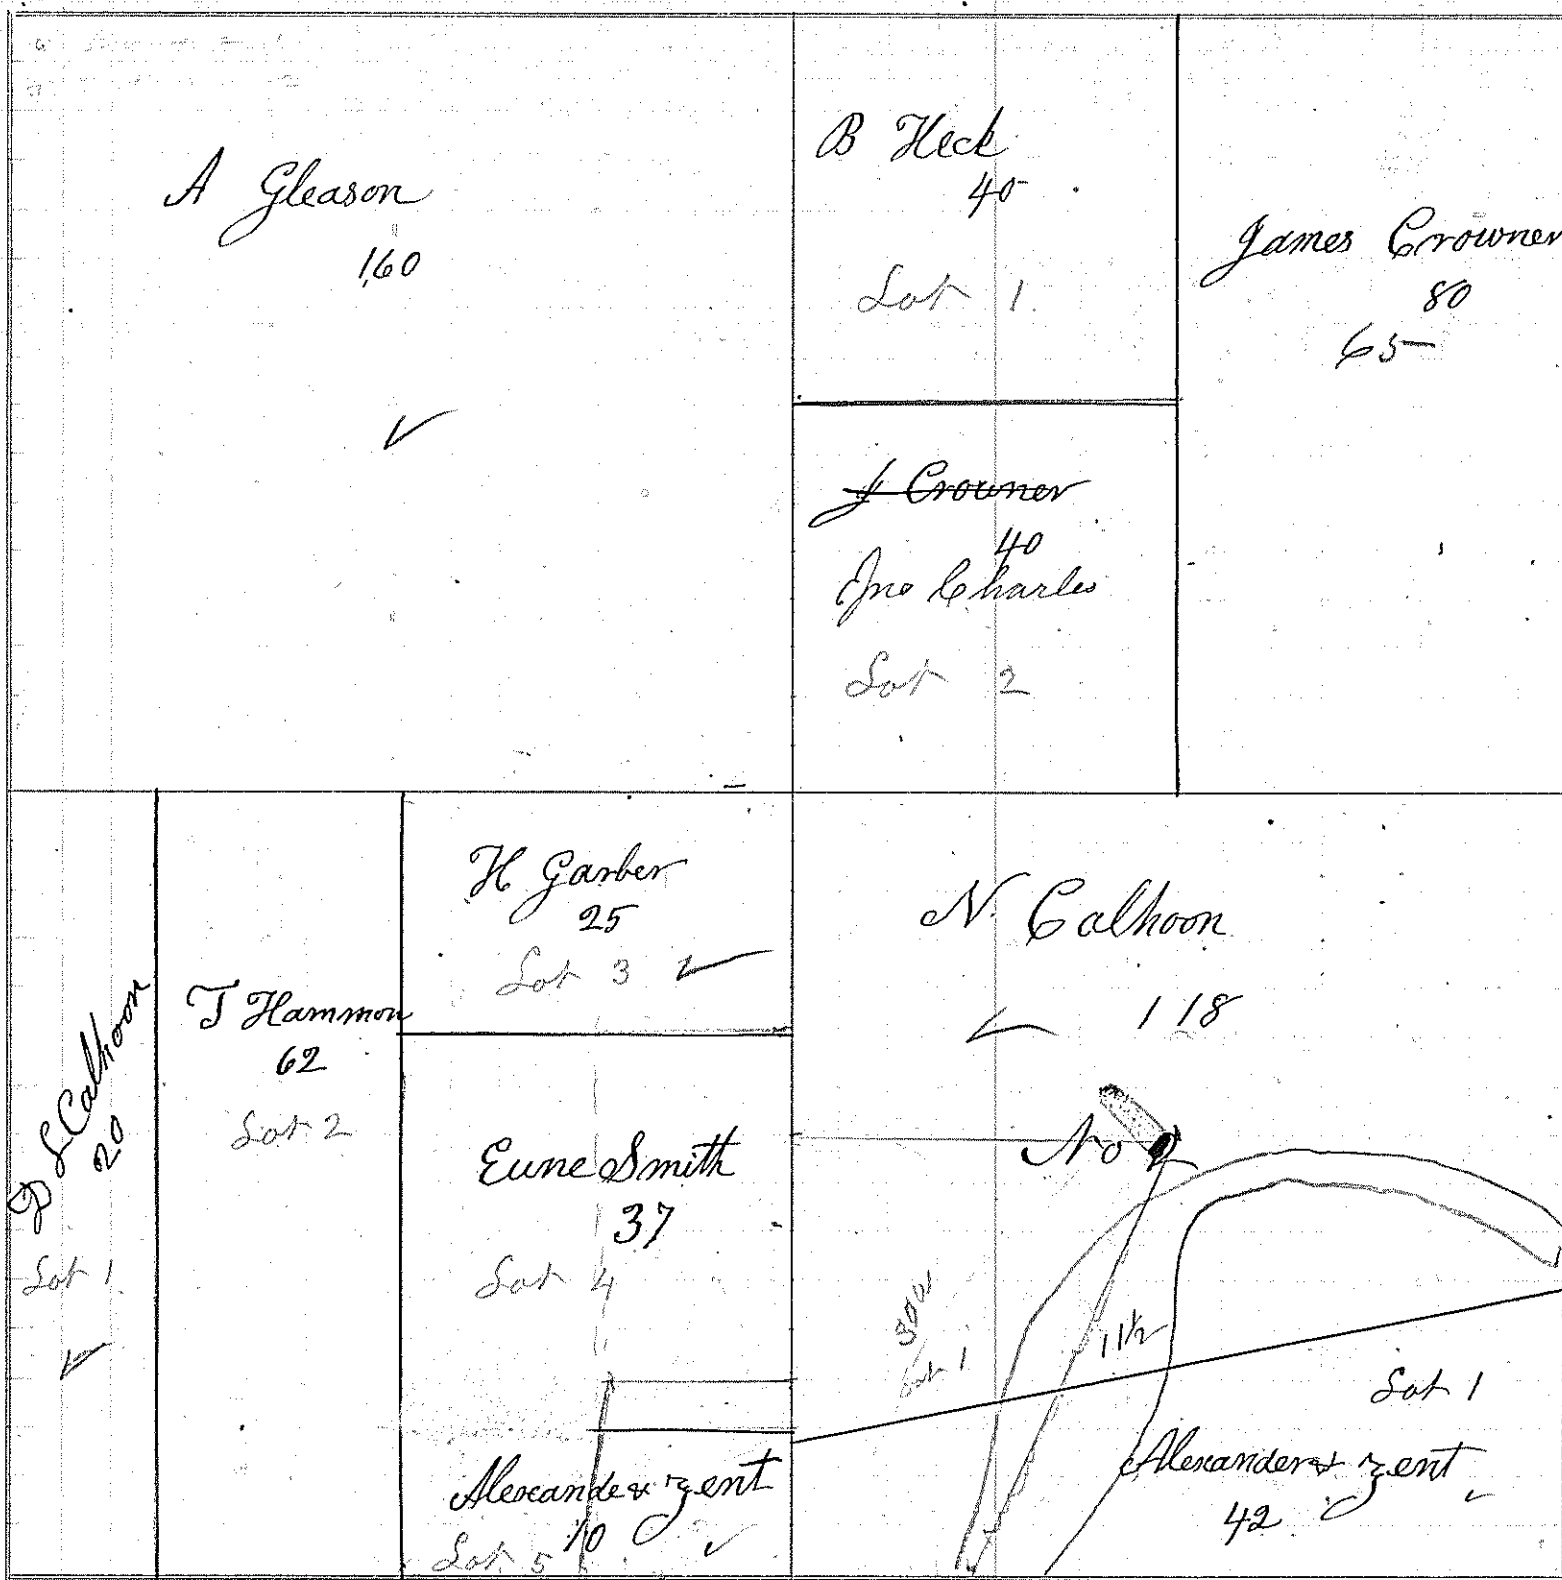 A Gleason
160
B Heck
40
Lot 1
James Crowner
80
65
J Crowner
40
Jno Charles
Lot 2
D L Calhoon
20
Lot 1
T Hammon
62
Lot 2
H Garber
25
Lot 3
Eune Smith
37
Lot 4
Alexander & Zent
10
Lot 5
N. Calhoon
118
No 2
Lot 1
11½
Lot 1
Alexander & Zent
42